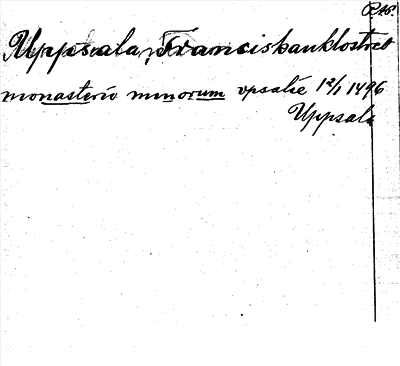 Uppsala, Franciskanklostret
monasterio minorum vpsalie 12/1 1496
Uppsala